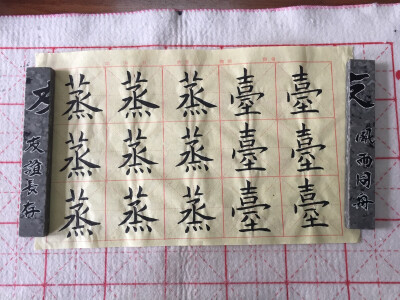 風雨同舟
臺臺臺
臺臺臺
蒸蒸蒸
蒸蒸蒸
蒸蒸蒸
友
友誼長存